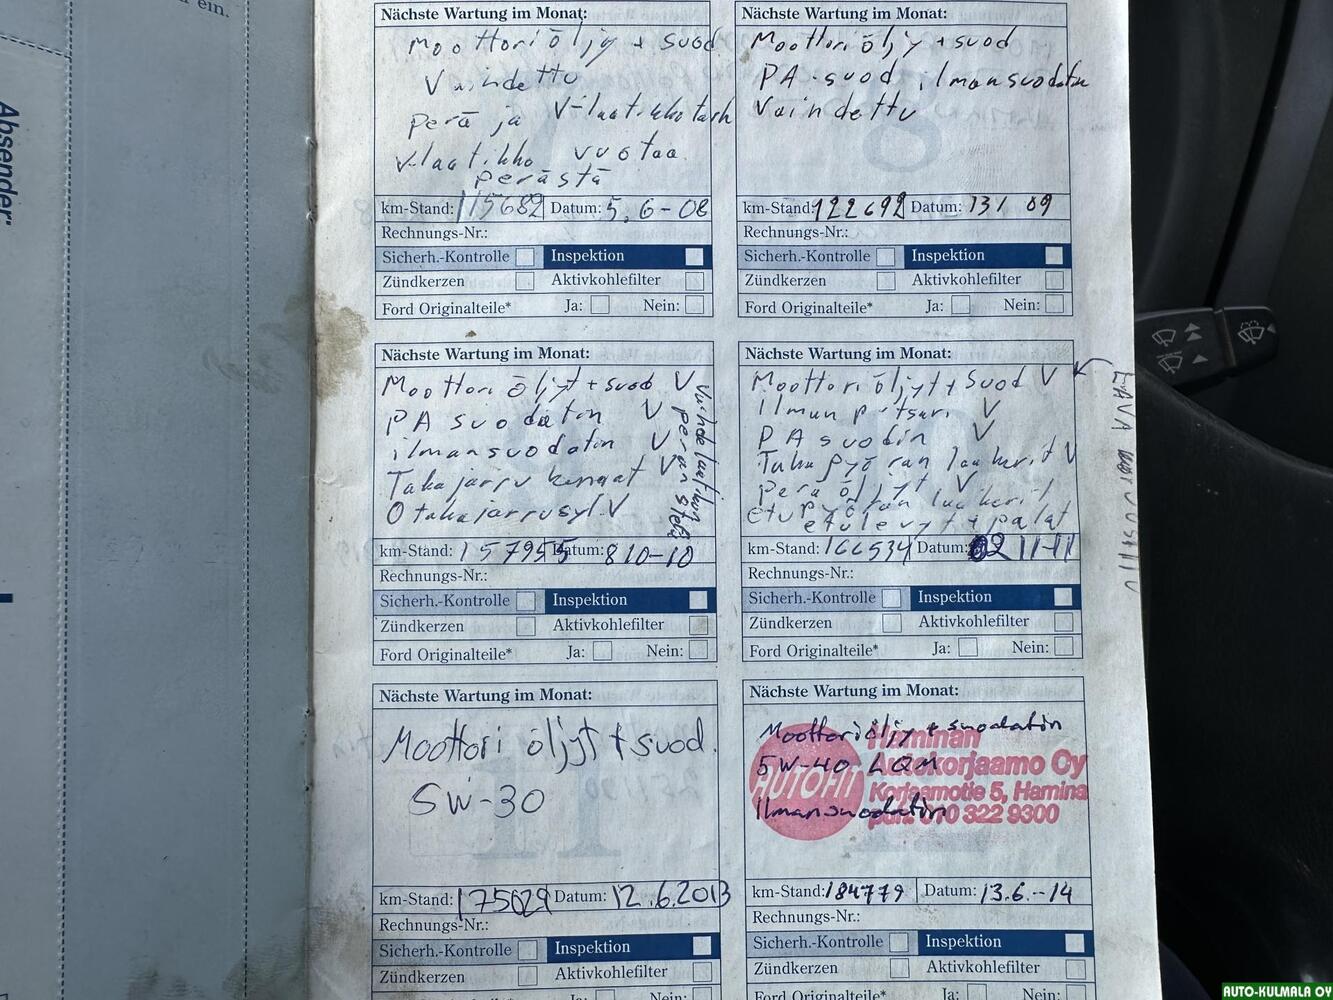 ein.
Absender:
Nächste Wartung im Monat:
Moottoriöljy + suod
Vaihdettu
perä ja V-laatikko tark
V-laatikko vuotaa
perästä
km-Stand: 115682 Datum: 5.6-08
Rechnungs-Nr.:
Sicherh.-Kontrolle Inspektion
Zündkerzen Aktivkohlefilter
Ford Originalteile* Ja: Nein:
Nächste Wartung im Monat:
Moottoriöljy + suod
PA-suod ilmansuodatin
Vaihdettu
km-Stand: 122692 Datum: 131 09
Rechnungs-Nr.:
Sicherh.-Kontrolle Inspektion
Zündkerzen Aktivkohlefilter
Ford Originalteile* Ja: Nein:
Nächste Wartung im Monat:
Moottori öljyt + suod V
PA suodatin V
ilmansuodatin V
Takajarru kengat V
Otakajarrusyl. V
km-Stand: 157955 Datum: 8 10-10
Rechnungs-Nr.:
Sicherh.-Kontrolle Inspektion
Zündkerzen Aktivkohlefilter
Ford Originalteile* Ja: Nein:
Nächste Wartung im Monat:
Moottoriöljyt + suod V
Ilman V
PA suodin V
Taka pyörän laakerit V
perä öljyt V
etupyörän laakerit
etulevyt + palat
km-Stand: 166534 Datum: 02 11-11
Rechnungs-Nr.:
Sicherh.-Kontrolle Inspektion
Zündkerzen Aktivkohlefilter
Ford Originalteile* Ja: Nein:
Nächste Wartung im Monat:
Moottori öljyt + suod.
5W-30
km-Stand: 175629 Datum: 12.6.2013
Rechnungs-Nr.:
Sicherh.-Kontrolle Inspektion
Zündkerzen Aktivkohlefilter
Ja: Nein:
Nächste Wartung im Monat:
Moottoriöljy + suodatin
5W-40 LQM
Ilmansuodatin
AUTOFIT
Haminan
Autokorjaamo Oy
Korjaamotie 5, Hamina
puh. 010 322 9300
km-Stand: 184779 Datum: 13.6.-14
Rechnungs-Nr.:
Sicherh.-Kontrolle Inspektion
Zündkerzen Aktivkohlefilter
Ford Originalteile* Ja: Nein:
AUTO-KULMALA OY